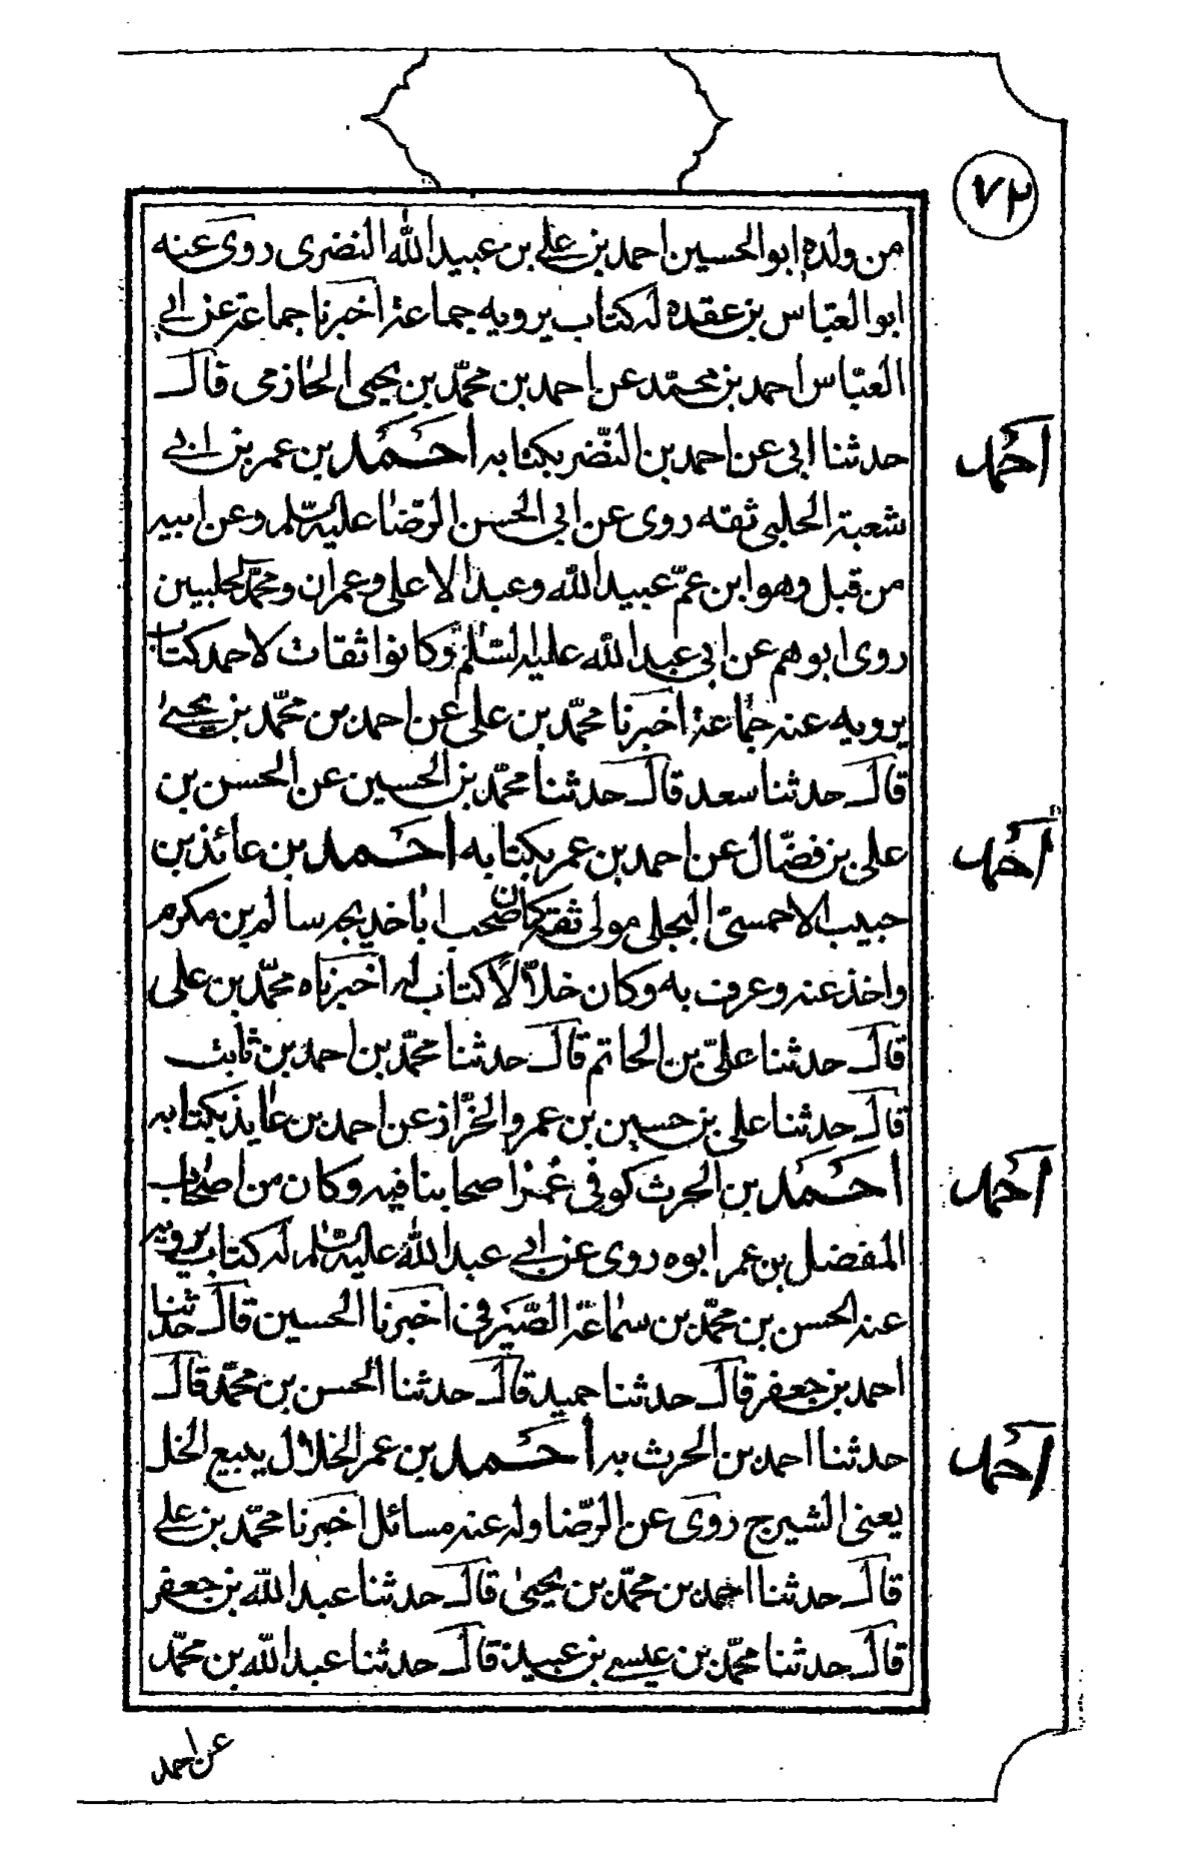 ٧٢
من ولده ابو الحسين احمد بن علي بن عبيد الله النضرى روى عنه
ابو العباس بن عقده له كتاب يرويه جماعة اخبرنا جماعة عن ابي
العبّاس احمد بن محمّد عن احمد بن محمّد بن يحيى الحازمى قال
حدثنا ابى عن احمد بن النّضر بكتابه احمد بن عمر بن ابي
احمد
شعبة الحلبى ثقه روى عن ابى الحسن الرّضا عليه السّلم وعن ابيه
من قبل وهو ابن عمّ عبيد الله وعبد الاعلى وعمران ومحمّد الحلبيين
روى ابوهم عن ابى عبد الله عليه السّلم وكانوا ثقات لاحمد كتاب
يرويه عنه جماعة اخبرنا محمّد بن على عن احمد بن محمّد بن يحيى
قال حدثنا سعد قال حدثنا محمّد بن الحسين عن الحسن بن
على بن فضّال عن احمد بن عمر بكتابه احمد بن عائذ بن
احمد
حبيب الاحمسىّ البجلى مولى ثقة كان صحب ابا خديجه سالم بن مكرم
واخذ عنه وعرف به وكان خلّالا كتاب له اخبرناه محمّد بن على
قال حدثنا علىّ بن الحاتم قال حدثنا محمّد بن احمد بن ثابت
قال حدثنا على بن حسين بن عمرو الخزّاز عن احمد بن عايذ بكتابه
احمد بن الحرث كوفى غمز اصحابنا فيه وكان من اصحاب
احمد
المفضل بن عمر ابوه روى عن ابي عبد الله عليه السّلم له كتاب يرويه
عنه الحسن بن محمّد بن سماعة الصّيرفى اخبرنا الحسين قال حدثنا
احمد بن جعفر قال حدثنا حميد قال حدثنا الحسن بن محمّد قال
حدثنا احمد بن الحرث به احمد بن عمر الخلال يبيع الخل
احمد
يعنى الشيرج روى عن الرّضا وله عنه مسائل اخبرنا محمّد بن علي
قال حدثنا احمد بن محمّد بن يحيى قال حدثنا عبد الله بن جعفر
قال حدثنا محمّد بن عيسى بن عبيد قال حدثنا عبد الله بن محمّد
عن احمد